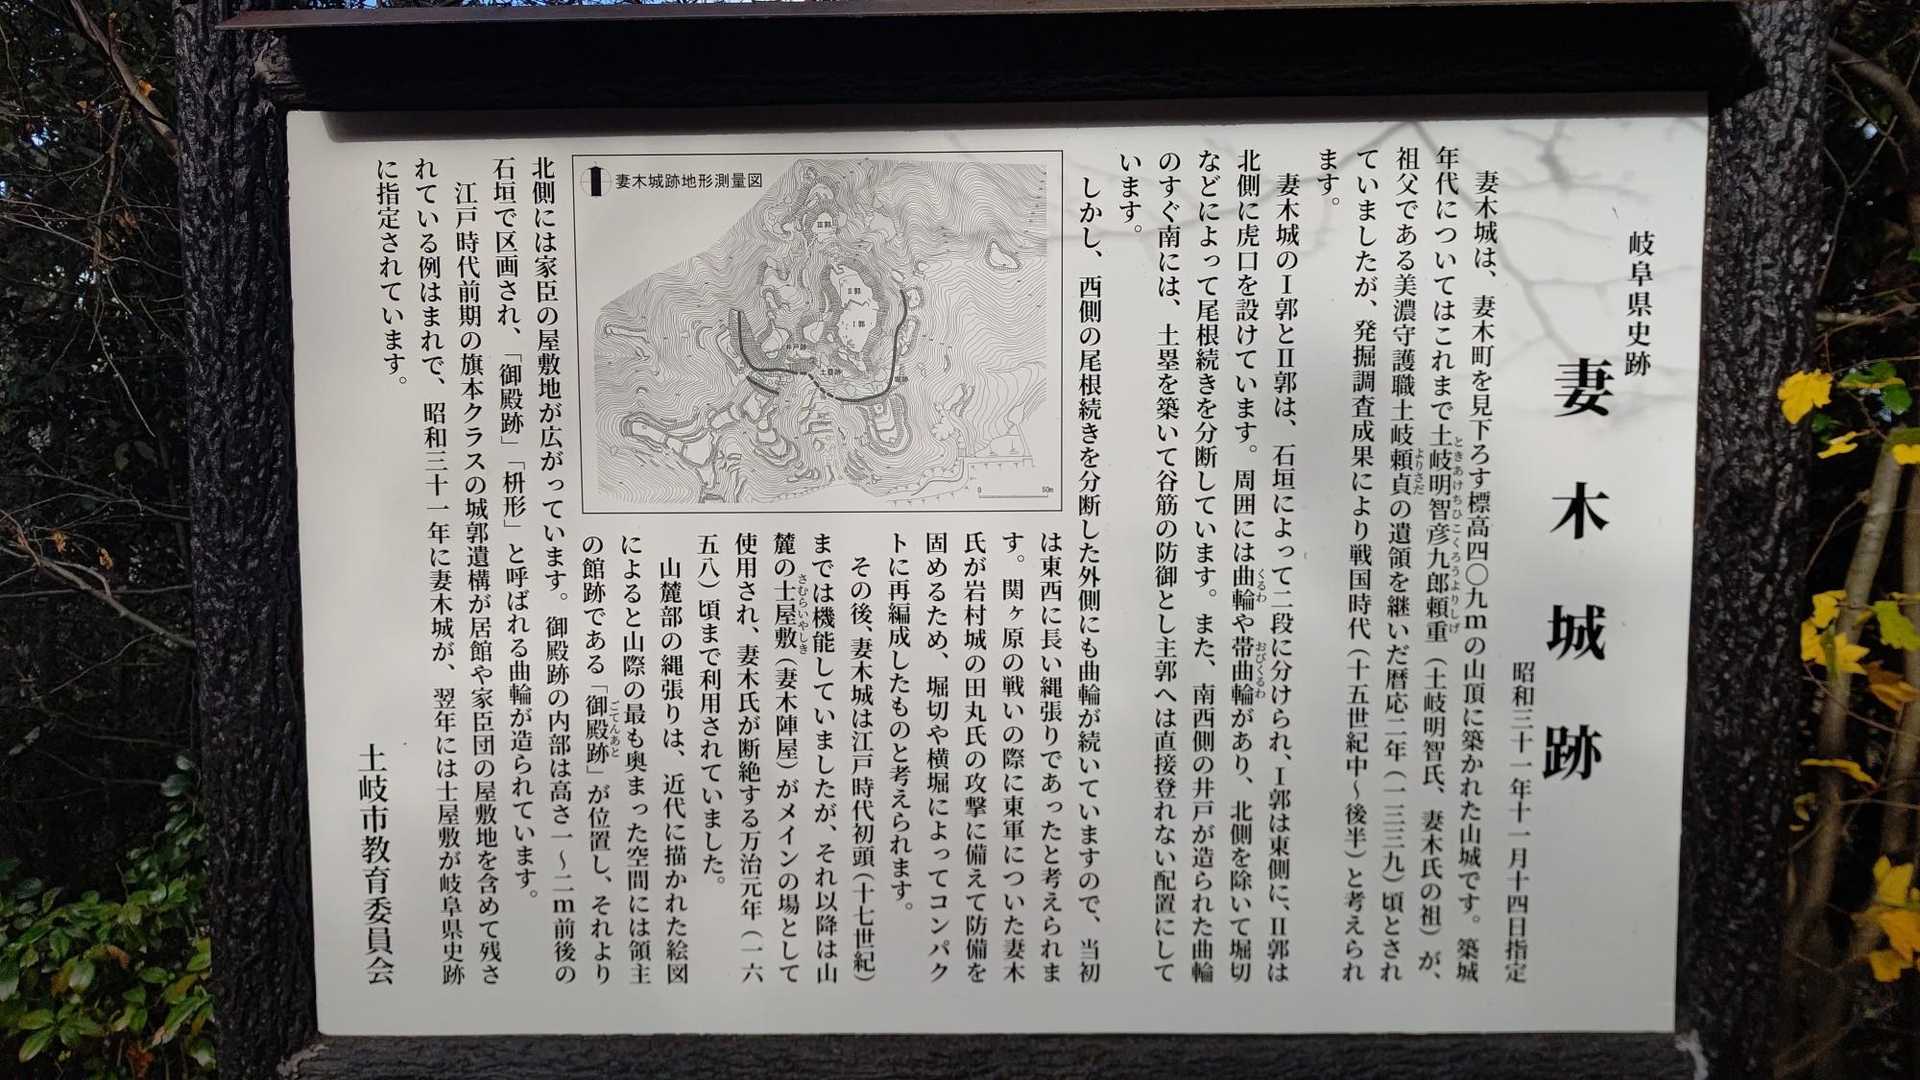 岐阜県史跡
妻木城跡
昭和三十一年十一月十四日指定
妻木城は、妻木町を見下ろす標高四〇九mの山頂に築かれた山城です。築城
年代についてはこれまで土岐明智彦九郎頼重（土岐明智氏、妻木氏の祖）が、
ときあけちひこくろうよりしげ
祖父である美濃守護職土岐頼貞の遺領を継いだ暦応二年（一三三九）頃とされ
よりさだ
ていましたが、発掘調査成果により戦国時代（十五世紀中～後半）と考えられ
ます。
妻木城のⅠ郭とⅡ郭は、石垣によって二段に分けられ、Ⅰ郭は東側に、Ⅱ郭は
北側に虎口を設けています。周囲には曲輪や帯曲輪があり、北側を除いて堀切
くるわ
おびくるわ
などによって尾根続きを分断しています。また、南西側の井戸が造られた曲輪
のすぐ南には、土塁を築いて谷筋の防御とし主郭へは直接登れない配置にして
います。
しかし、西側の尾根続きを分断した外側にも曲輪が続いていますので、当初
は東西に長い縄張りであったと考えられま
す。関ヶ原の戦いの際に東軍についた妻木
氏が岩村城の田丸氏の攻撃に備えて防備を
固めるため、堀切や横堀によってコンパク
トに再編成したものと考えられます。
その後、妻木城は江戸時代初頭（十七世紀）
までは機能していましたが、それ以降は山
麓の士屋敷（妻木陣屋）がメインの場として
さむらいやしき
使用され、妻木氏が断絶する万治元年（一六
五八）頃まで利用されていました。
山麓部の縄張りは、近代に描かれた絵図
によると山際の最も奥まった空間には領主
の館跡である「御殿跡」が位置し、それより
ごてんあと
北側には家臣の屋敷地が広がっています。御殿跡の内部は高さ一～二m前後の
石垣で区画され、「御殿跡」「枡形」と呼ばれる曲輪が造られています。
江戸時代前期の旗本クラスの城郭遺構が居館や家臣団の屋敷地を含めて残さ
れている例はまれで、昭和三十一年に妻木城が、翌年には士屋敷が岐阜県史跡
に指定されています。
土岐市教育委員会
妻木城跡地形測量図
Ⅲ郭
Ⅱ郭
Ⅰ郭
井戸跡
土塁跡
0
50m